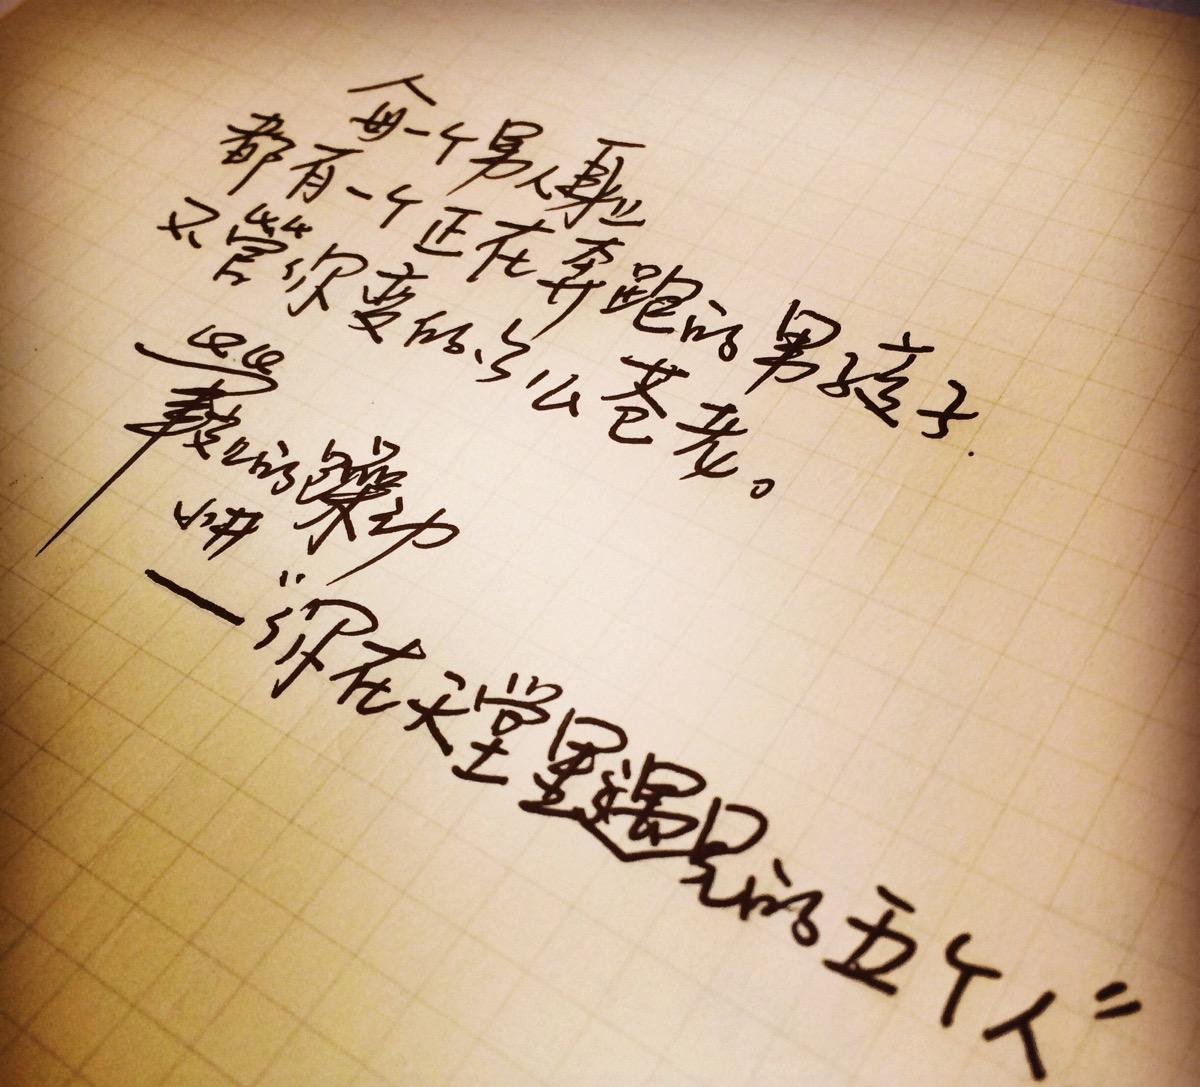 每一个男人
都有一个正在奔跑的男孩子.
不管你变的多么苍老。
的躁动
—"你在天堂里遇见的五个人"